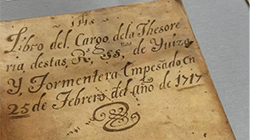 Libro del Cargo dela Thesore
ria destas Rs. Ss.nas de Yuiza
Y Formentera Empesado en
25 de Febrero del año de 1717